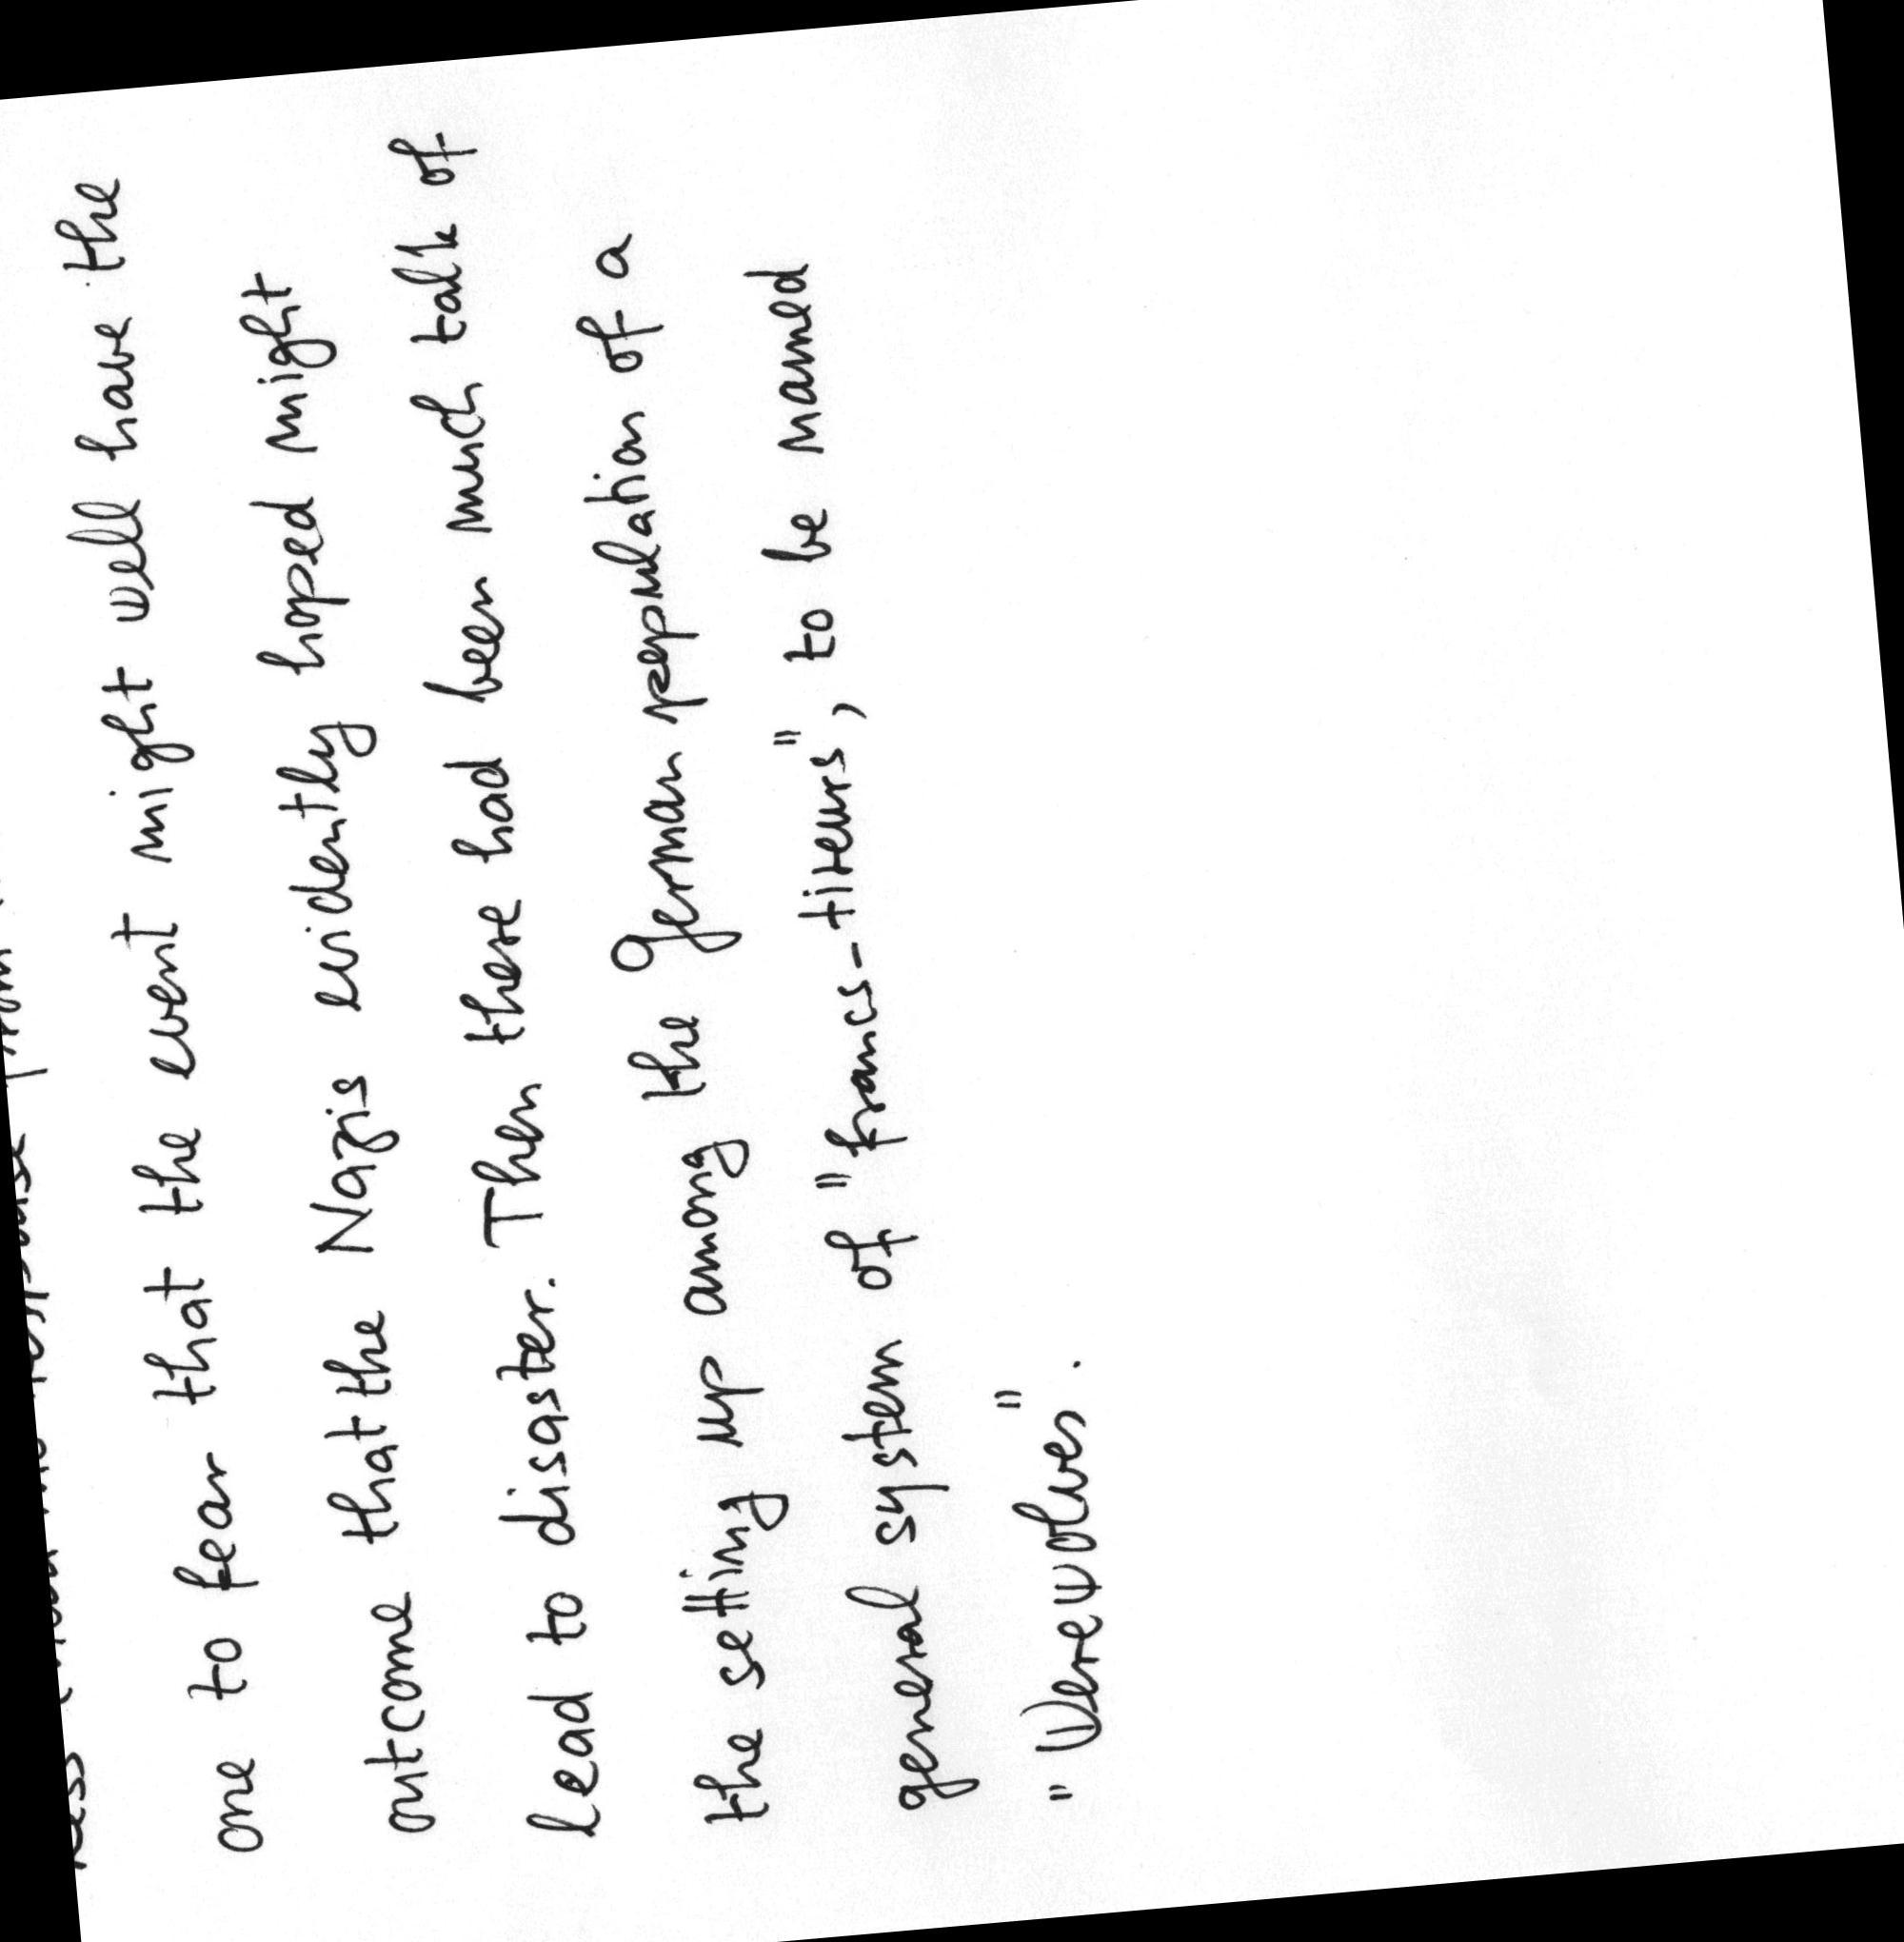 one to fear that the event might well have the
outcome that the Nazis evidently hoped might
lead to disaster. Then there had been much talk of
the setting up among the German population of a
general system of "francs-tireurs", to be named
"Verewolves".